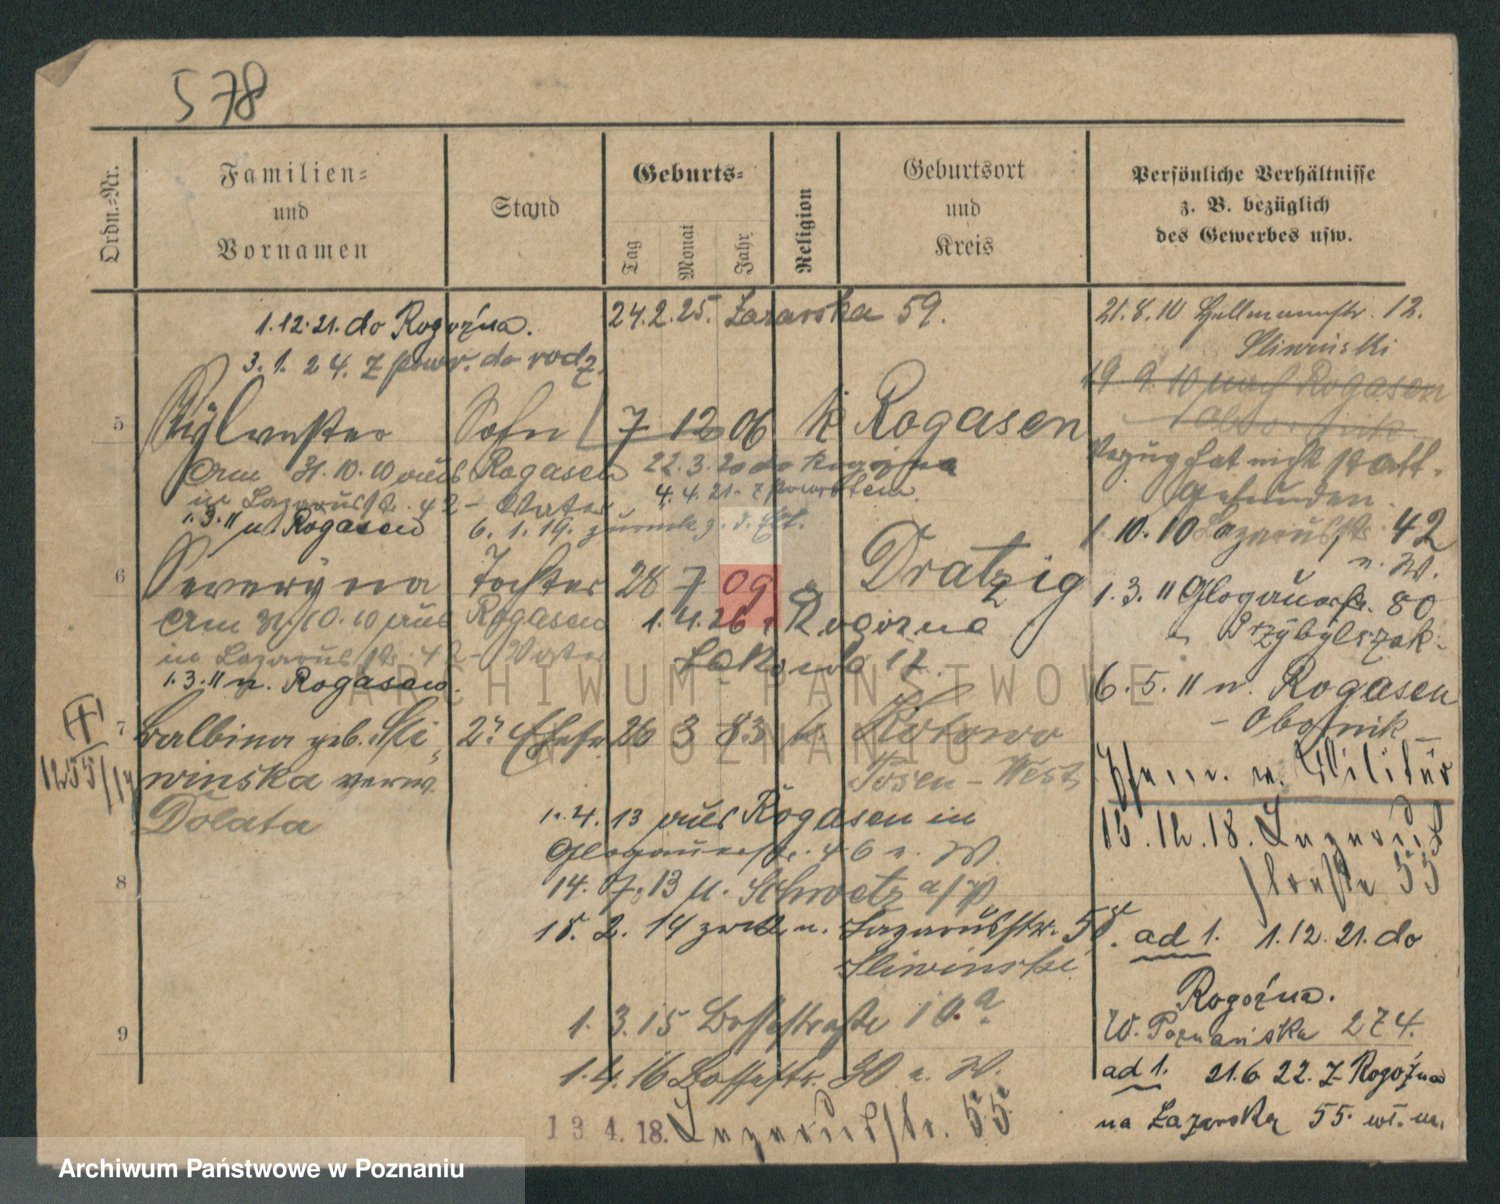 578
Ordn.-Nr.
Familien-
und
Vornamen
Stand
Geburts-
Tag
Monat
Jahr
Religion
Geburtsort
und
Kreis
Persönliche Verhältnisse
z. B. bezüglich
des Gewerbes usw.
1.12.21. do Rogoźna.
3.1.24. z powr. do rodz.
24.2.25. Lazarska 59.
5
Sylvester
Sohn
7 12 06 k Rogasen
Am 31.10.10 aus Rogasen
in Lazarusstr. 42 - Vater
1.3.11 n. Rogasen
22.3.20 do Rogoźna
4.4.21. z powrotem.
6.1.19. zurück
6
Severyna
Tochter
28 7 09
Dratzig
Am 31.10.10 aus Rogasen
in Lazarusstr. 42 - Vater
1.3.11 n. Rogasen.
1.4.26 Rogoźna
7
Balbina geb. Sli-
winska verw.
Dolata
2. Ehefr.
26 3 83 k.
Kotowo
Posen-West
1255/14
1.4.13 aus Rogasen in
Glogauerstr. 46 n. W.
14.7.13 n. Schwetz a/W
8
15.2.14 zrck n. Lazarusstr. 55.
Sliwinski
1.3.15 Bosestraße 10.a
9
1.4.16 Bosestr. 30 n. W.
13.4.18. Lazarusstr. 55
21.8.10 Hellmannstr. 12.
Sliwinski
19.9.10 nach Rogasen
Obornik
Verzug hat nicht statt-
gefunden.
1.10.10 Lazarusstr. 42
n. W.
1.3.11 Glogauerstr. 80
Przybylszak.
6.5.11 n. Rogasen
- Obornik -
z. Militär
15.12.18. Lazarus
straße 55
ad 1. 1.12.21. do
Rogoźna.
W. Poznańska 274.
ad 1. 21.6.22. z Rogoźna
na Lazarska 55. wł. m.
ARCHIWUM PAŃSTWOWE
W POZNANIU
Archiwum Państwowe w Poznaniu